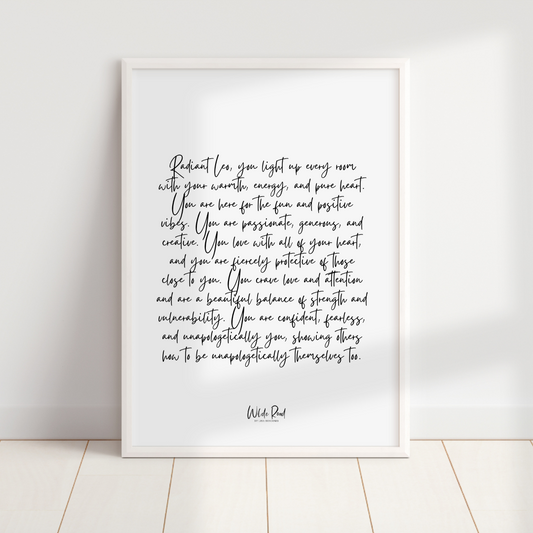 Radiant Leo, you light up every room
with your warmth, energy, and pure heart.
You are here for the fun and positive
vibes. You are passionate, generous, and
creative. You love with all of your heart,
and you are fiercely protective of those
close to you. You crave love and attention
and are a beautiful balance of strength and
vulnerability. You are confident, fearless,
and unapologetically you, showing others
how to be unapologetically themselves too.
Road